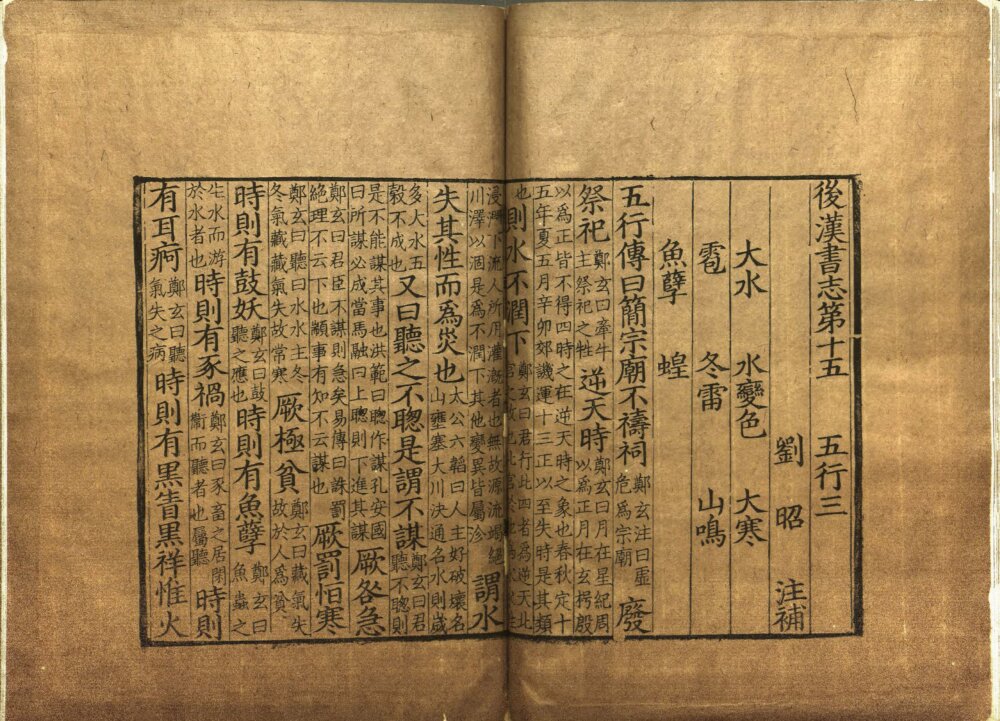 後漢書志第十五 五行三
劉昭 注補
大水 水變色 大寒
雹 冬雷 山鳴
魚孽 蝗
五行傳曰簡宗廟不禱祠鄭玄注曰虛危爲宗廟廢
祭祀鄭玄曰牽牛主祭祀之牲逆天時鄭玄曰月在星紀周以爲正月在玄枵殷
以爲正皆不得四時之在逆天時之象也春秋定十五年夏五月辛卯郊譏運十三正以至失時是其類
也則水不潤下鄭玄曰君行此四者爲逆天北
浸下流人所用灌漑者也無故源流竭絕川澤以涸是爲不潤下其他變異皆屬沴謂水
失其性而爲災也太公六韜曰人主好破壞名山壅塞大川決通名水則歲
多大水五穀不成也又曰聽之不聰是謂不謀鄭玄曰君聽不聰則
是不能謀其事也洪範曰聰作謀孔安國曰所謀必成當馬融曰上聰則下進其謀厥咎急
鄭玄曰君臣不謀則急矣易傳曰誅罰絕理不云下也顓事有知不云謀也厥罰恒寒
鄭玄曰聽曰水水主冬冬氣藏藏氣失故常寒厥極貧鄭玄曰藏氣失故於人爲貧
時則有鼓妖鄭玄曰鼓聽之應也時則有魚孽鄭玄曰魚蟲之
生水而游於水者也時則有豕禍鄭玄曰豕畜之居閑衞而聽者也屬聽時則
有耳痾鄭玄曰聽氣失之病時則有黑眚黑祥惟火